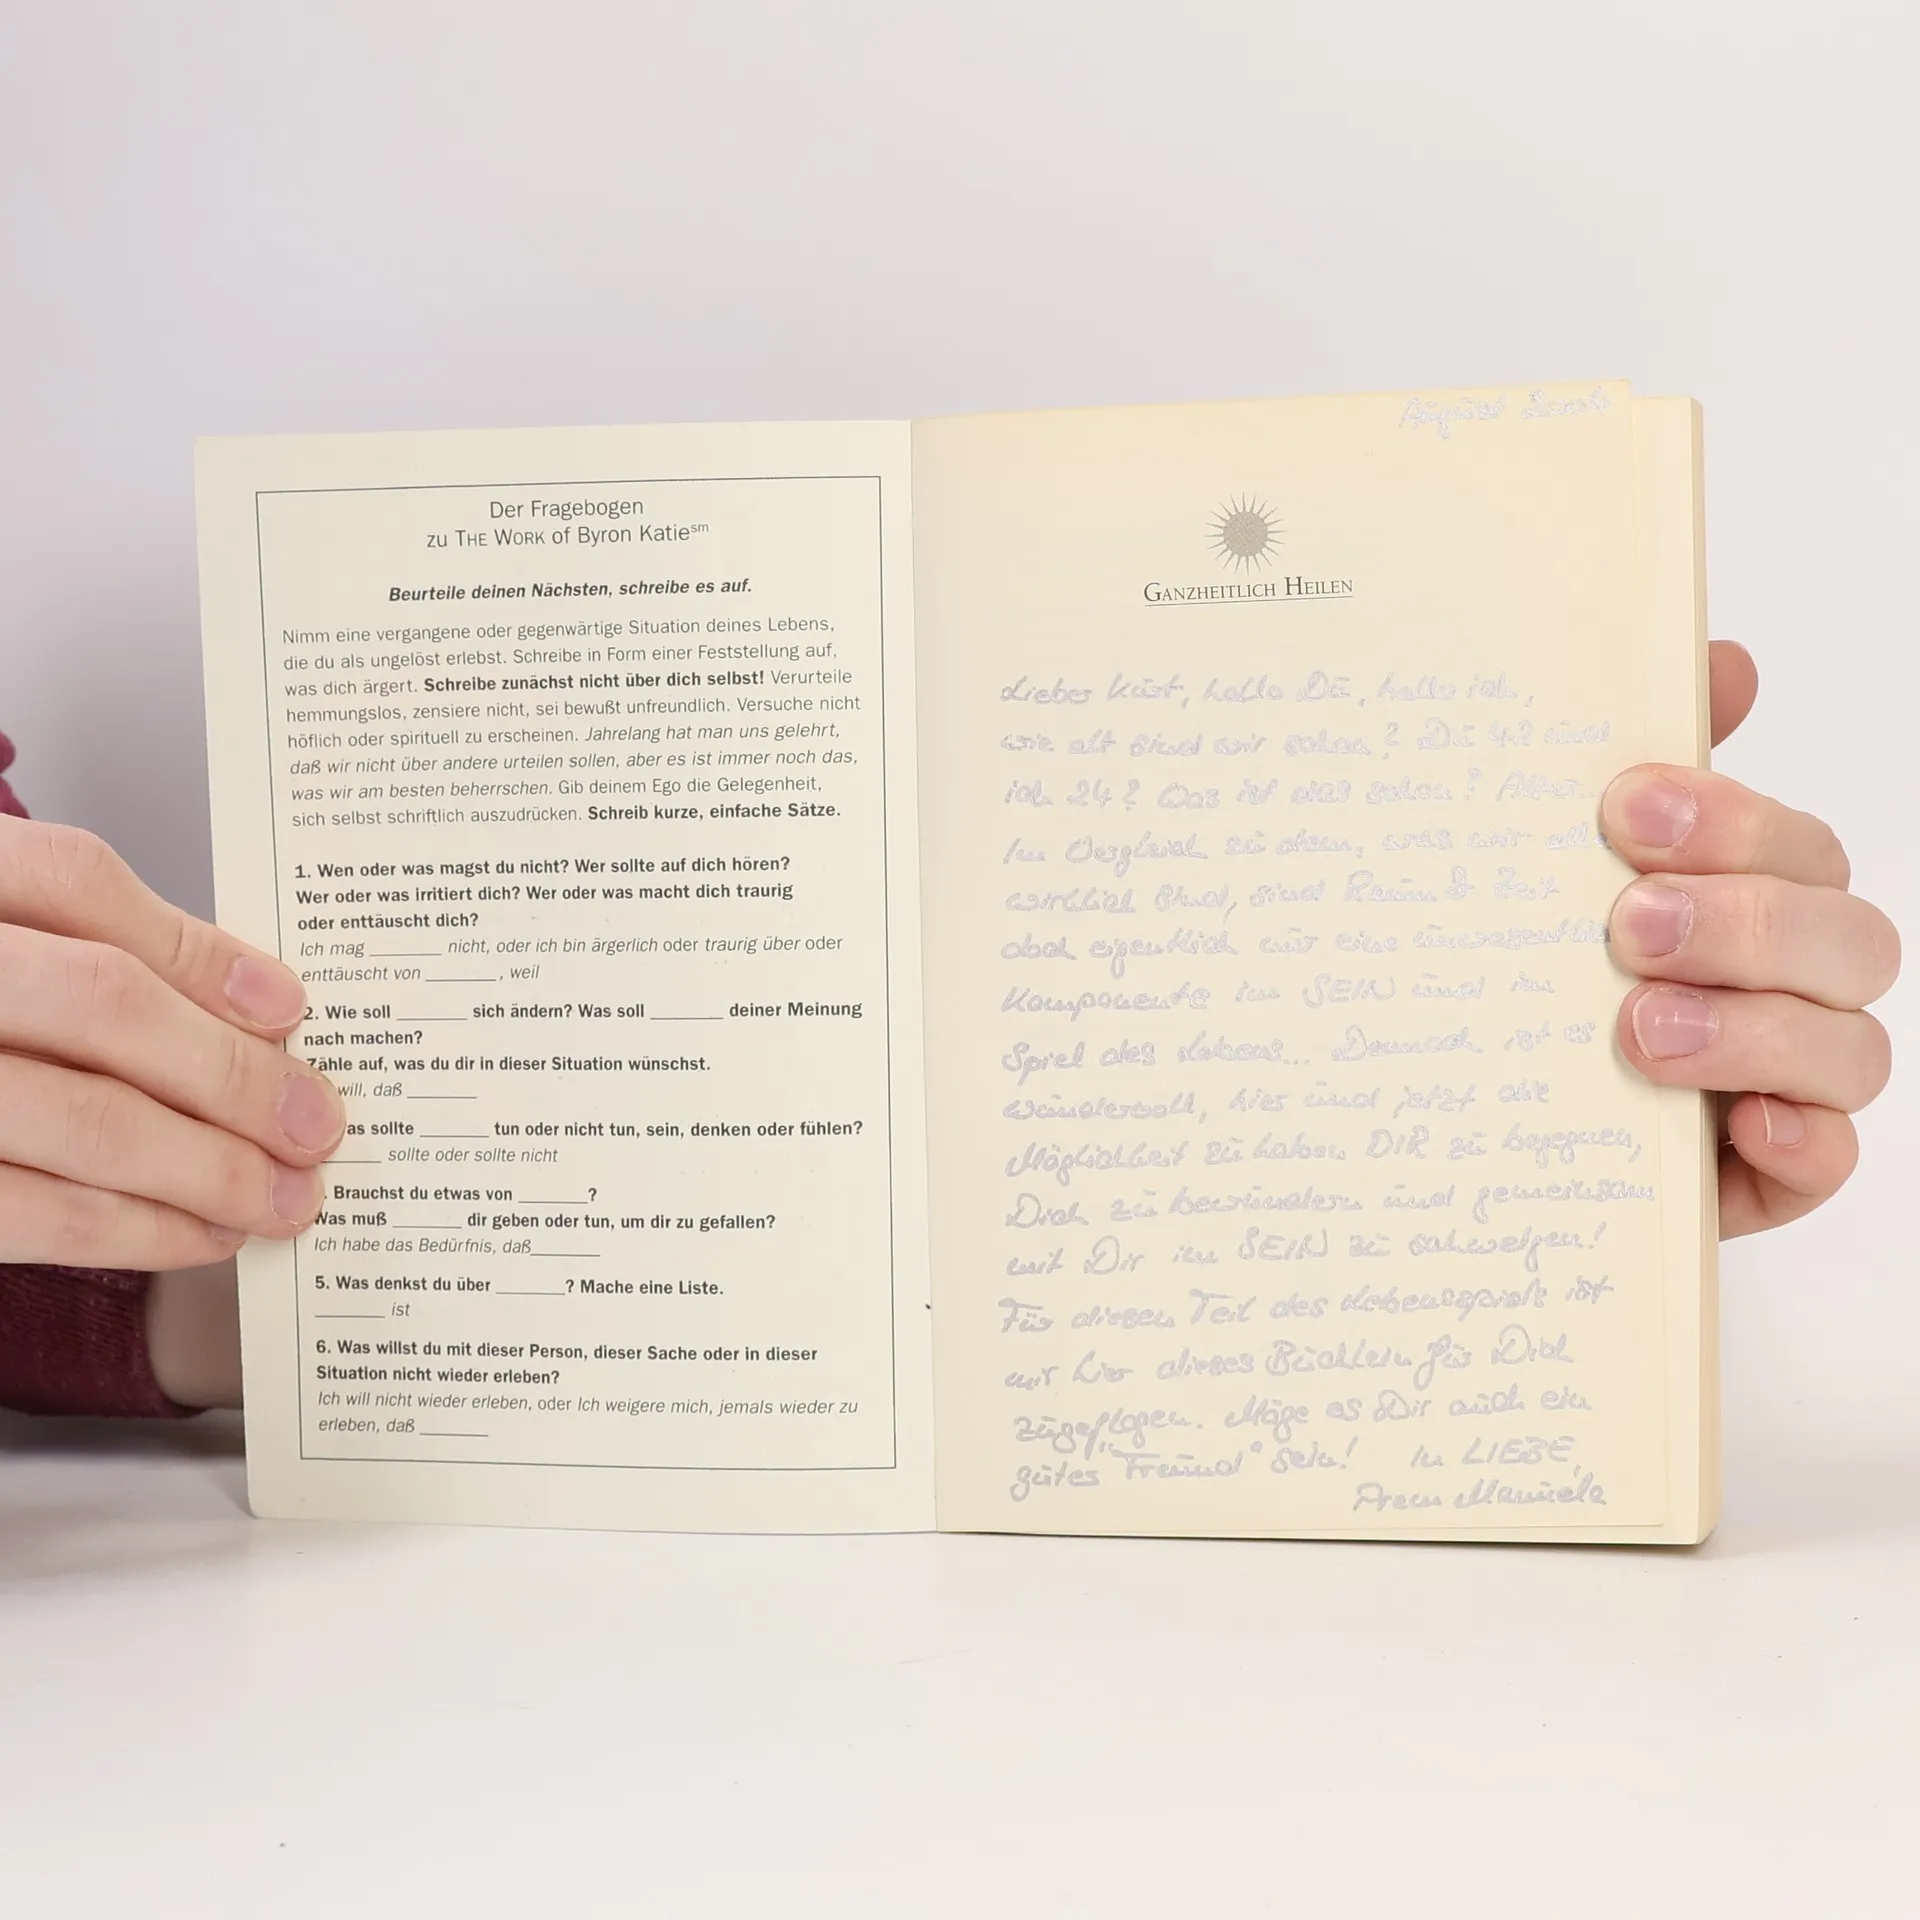 Der Fragebogen
zu THE WORK of Byron Katie℠
Beurteile deinen Nächsten, schreibe es auf.
Nimm eine vergangene oder gegenwärtige Situation deines Lebens,
die du als ungelöst erlebst. Schreibe in Form einer Feststellung auf,
was dich ärgert. Schreibe zunächst nicht über dich selbst! Verurteile
hemmungslos, zensiere nicht, sei bewußt unfreundlich. Versuche nicht
höflich oder spirituell zu erscheinen. Jahrelang hat man uns gelehrt,
daß wir nicht über andere urteilen sollen, aber es ist immer noch das,
was wir am besten beherrschen. Gib deinem Ego die Gelegenheit,
sich selbst schriftlich auszudrücken. Schreib kurze, einfache Sätze.
1. Wen oder was magst du nicht? Wer sollte auf dich hören?
Wer oder was irritiert dich? Wer oder was macht dich traurig
oder enttäuscht dich?
Ich mag _______ nicht, oder ich bin ärgerlich oder traurig über oder
enttäuscht von _______, weil
2. Wie soll _______ sich ändern? Was soll _______ deiner Meinung
nach machen?
Zähle auf, was du dir in dieser Situation wünschst.
will, daß _______
as sollte _______ tun oder nicht tun, sein, denken oder fühlen?
_______ sollte oder sollte nicht
. Brauchst du etwas von _______?
Was muß _______ dir geben oder tun, um dir zu gefallen?
Ich habe das Bedürfnis, daß_______
5. Was denkst du über _______? Mache eine Liste.
_______ ist
6. Was willst du mit dieser Person, dieser Sache oder in dieser
Situation nicht wieder erleben?
Ich will nicht wieder erleben, oder Ich weigere mich, jemals wieder zu
erleben, daß _______
August
GANZHEITLICH HEILEN
Lieber Kurt, hallo Du, hallo ich,
wie alt sind wir schon? Du 42 und
ich 24? Was ist das schon? Alter...
Im Vergleich zu dem, was wir alle
wirklich sind, sind Raum & Zeit
doch eigentlich nur eine
Komponente im SEIN und im
Spiel des Lebens... Dennoch ist es
wundervoll, hier und jetzt die
Möglichkeit zu haben DIR zu begegnen,
Dich zu bewundern und gemeinsam
mit Dir im SEIN zu schwelgen!
Für diesen Teil des Lebensspiels ist
mir hier dieses Büchlein für Dich
zugeflogen. Möge es Dir auch ein
gutes „Freund" sein! In LIEBE,
Prem Manuela